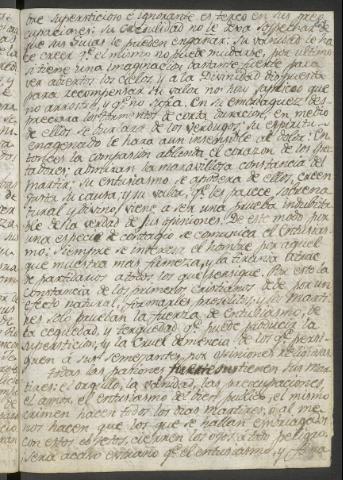 bre supersticioso e ignorante es terco en sus preo
cupaciones; su credulidad no le deva sospechar de
que sus guias le pueden engañar. Su vanidad le ha
ce creer qe el mismo no puede mudarse, por ultimo
si tiene una imaginacion bastante fuerte para
ver abiertos los cielos, y a la Divinidad dispuesta
para recompensar su valor no hay suplicio que
no arrostre, y qe no sufra. En su embriaguez des-
preciara los tormentos de corta duracion, en medio
de ellos se burlara de los verdugos, su espiritu
enagenado le hara aun insensible al dolor: En
tonces la compasion ablanda el corazon de los spec
tadores; admiran la maravillosa constancia del
martir; su entusiasmo se apodera de ellos, creen
justa su causa, y su valor, qe les parece sobrena
tural y divino, viene à ser una prueba indubita
ble de la verdad de sus opiniones. De este modo por
una especie de contagio se comunica el entusias
mo; siempre se interesa el hombre por aquel
que muestra mas firmeza, y la tirania atrae
de partidarios a todos los que persigue. Por esto la
constancia de los primeros cristianos debe por un
efecto natural, formarles proselitos, y sus marti
res solo prueban la fuerza de entusiasmo, de
la ceguedad, y terquedad qe puede producir la
supersticion, y la cruel demencia de los qe persi-
guen à sus semejantes por opiniones religiosas.
Todas las pasiones fuertes tienen sus mar
tires: el orgullo, la vanidad, las preocupaciones
el amor, el entusiasmo del bien publico, el mismo
crimen hacen todos los dias martires, o al me
nos hacen que los que se hallan embriagados
con estos objetos, cierren los ojos a todo peligro.
Sera acaso extraño qe el entusiasmo, y fana